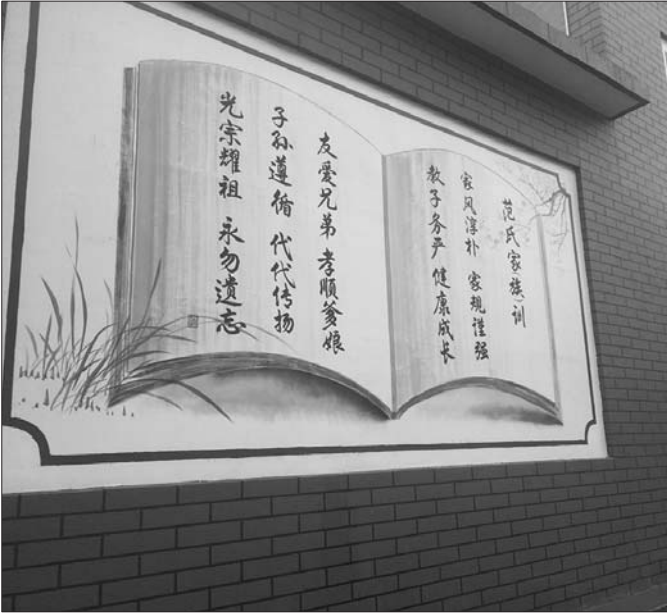 范氏家族训
家风淳朴 家规谨强
教子务严 健康成长
友爱兄弟 孝顺爹娘
子孙遵循 代代传扬
光宗耀祖 永勿遗忘